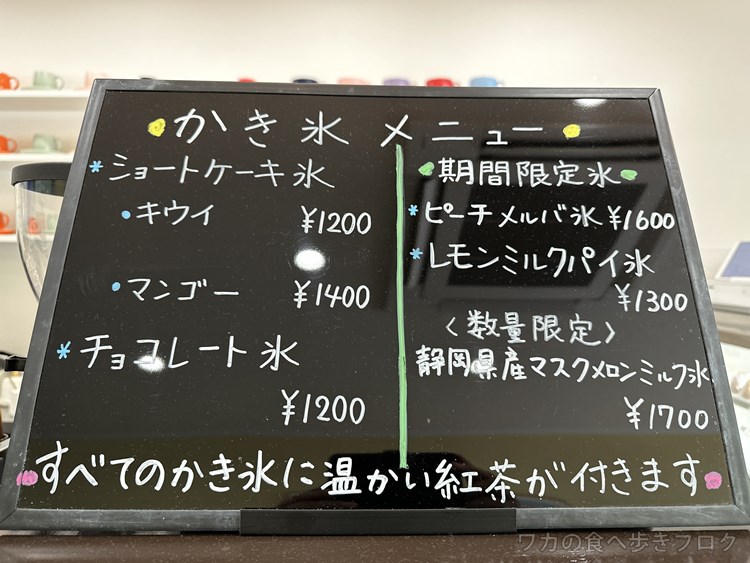 かき氷メニュー
*ショートケーキ氷
・キウイ ¥1200
・マンゴー ¥1400
*チョコレート氷
¥1200
期間限定氷
*ピーチメルバ氷 ¥1600
*レモンミルクパイ氷
¥1300
〈数量限定〉
静岡県産マスクメロンミルク氷
¥1700
すべてのかき氷に温かい紅茶が付きます
ワカの食べ歩きブログ